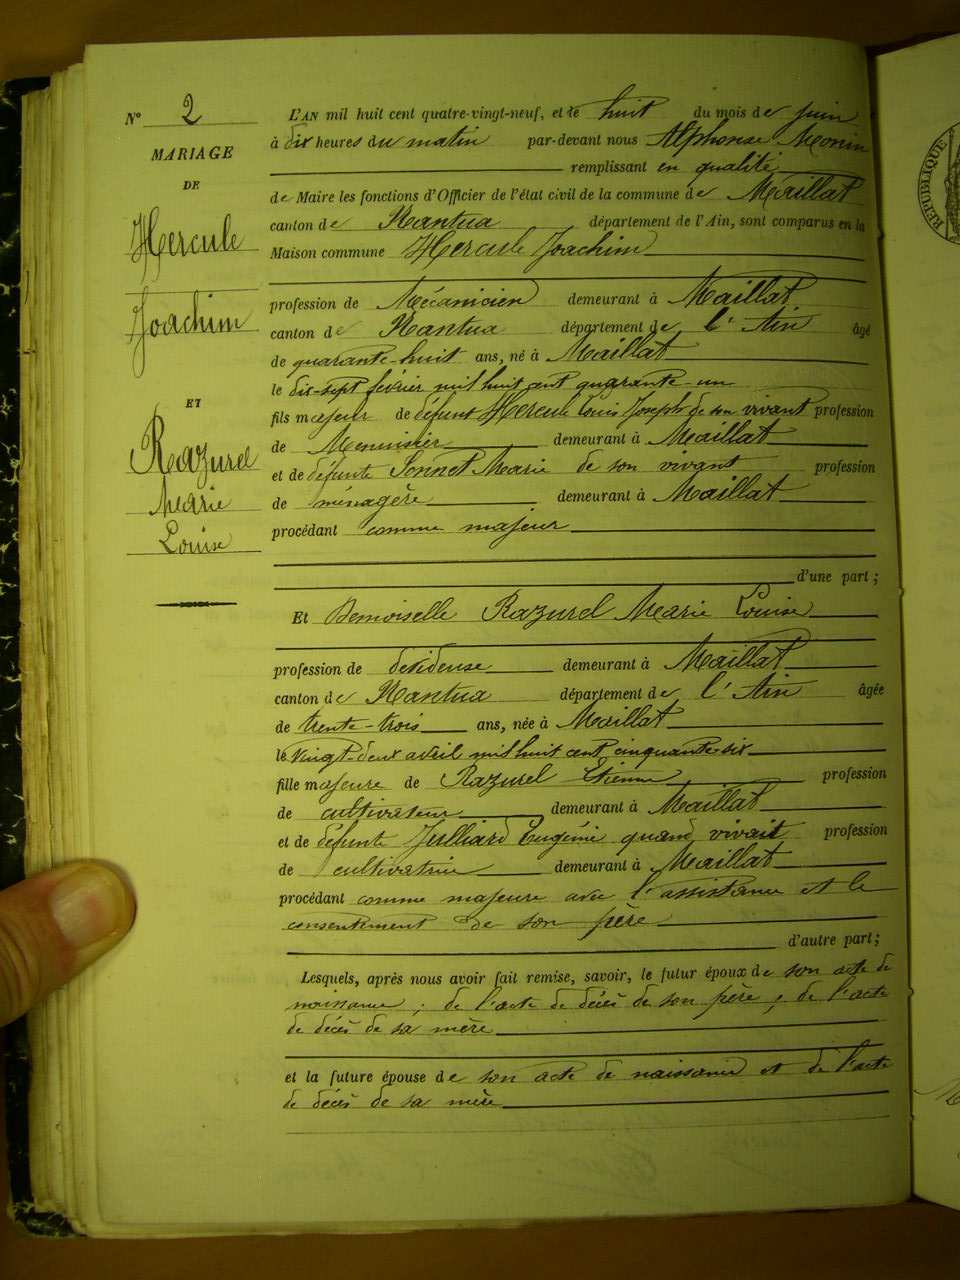 N° 2
MARIAGE
DE
Hercule
Joachim
ET
Razurel
Marie
Louise
L'AN mil huit cent quatre-vingt-neuf, et le huit du mois de juin
à dix heures du matin par-devant nous Alphonse Monin
remplissant en qualité
de Maire les fonctions d'Officier de l'état civil de la commune de Maillat
canton de Nantua département de l'Ain, sont comparus en la
Maison commune Hercule Joachim
profession de Mécanicien demeurant à Maillat
canton de Nantua département de l'Ain âgé
de quarante-huit ans, né à Maillat
le dix-sept février mil huit cent quarante-un
fils majeur de défunt Hercule Louis Joseph de son vivant profession
de Menuisier demeurant à Maillat
et de défunte Sonnet Marie de son vivant profession
de ménagère demeurant à Maillat
procédant comme majeur
d'une part;
Et Demoiselle Razurel Marie Louise
profession de dévideuse demeurant à Maillat
canton de Nantua département de l'Ain âgée
de trente-trois ans, née à Maillat
le vingt-deux avril mil huit cent cinquante-six
fille majeure de Razurel Etienne profession
de cultivateur demeurant à Maillat
et de défunte Julliard Eugénie quand vivait profession
de cultivatrice demeurant à Maillat
procédant comme majeure avec l'assistance et le
consentement de son père
d'autre part;
Lesquels, après nous avoir fait remise, savoir, le futur époux de son acte de
naissance; de l'acte de décès de son père; de l'acte
de décès de sa mère
et la future épouse de son acte de naissance et de l'acte
de décès de sa mère
RÉPUBLIQUE